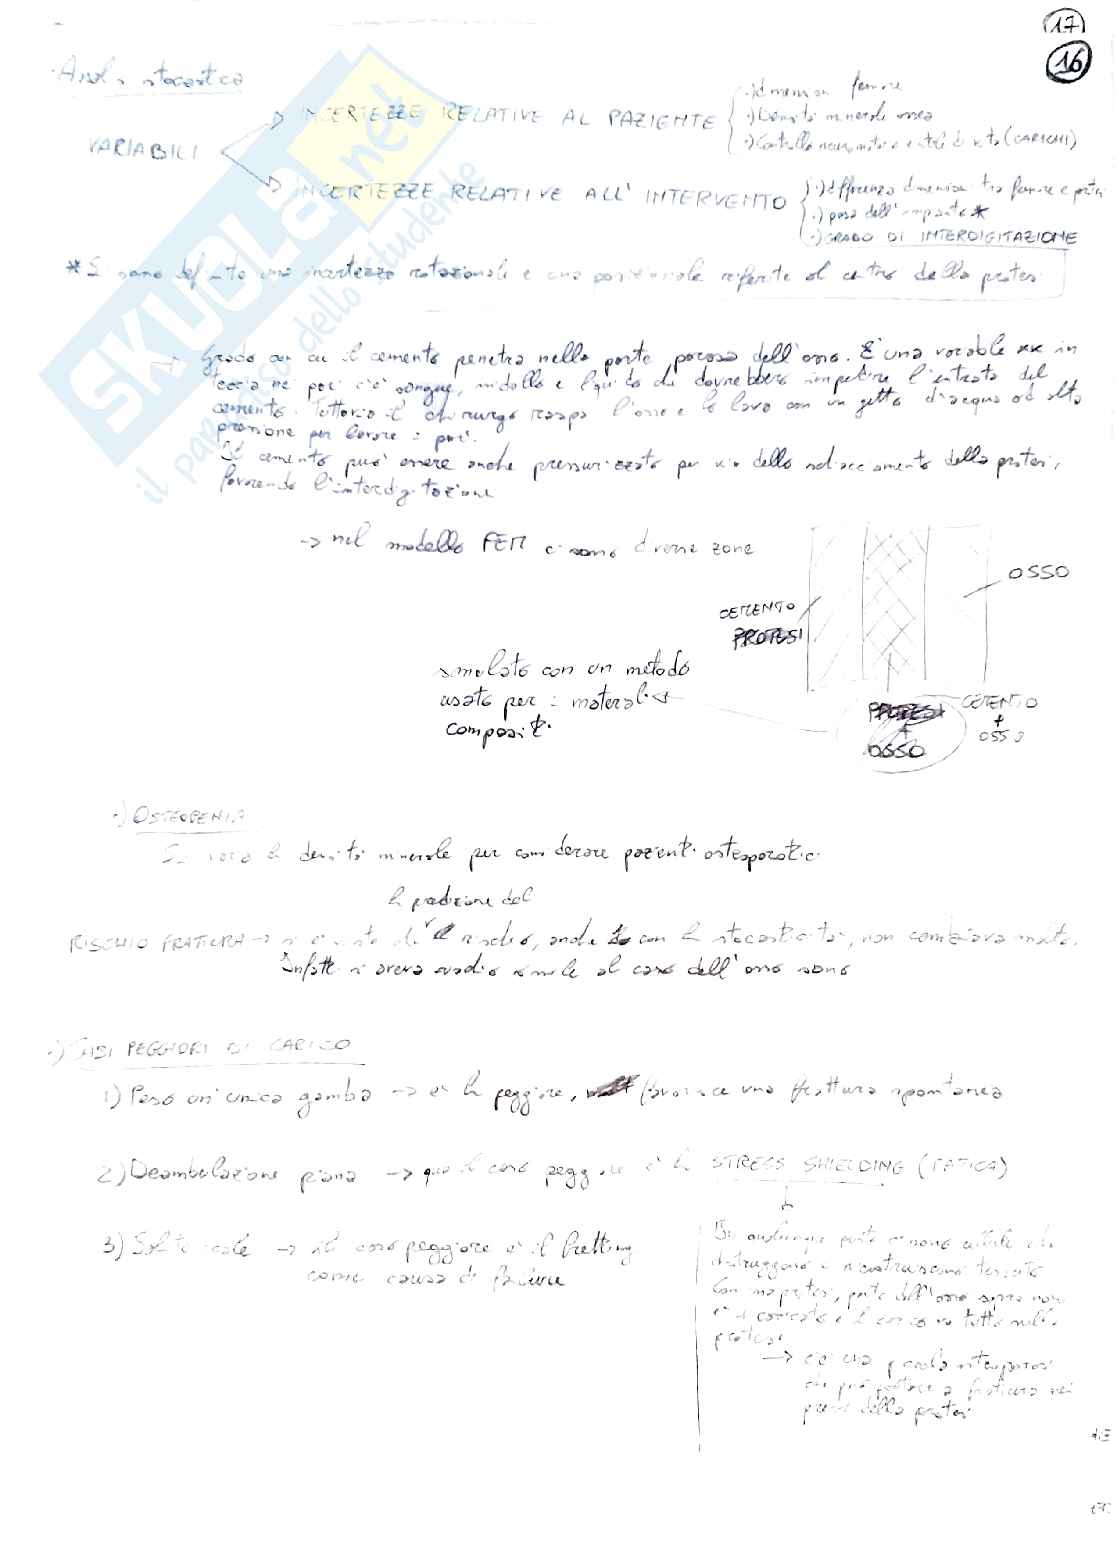 17
16
Analisi stocastica
VARIABILI
INCERTEZZE RELATIVE AL PAZIENTE
·) dimensioni femore
·) Densità minerale ossea
·) Controllo neuromotorio e stile di vita (CARICHI)
INCERTEZZE RELATIVE ALL'INTERVENTO
·) differenza dimensioni tra femore e protesi
·) posa dell'impianto *
·) GRADO DI INTERDIGITAZIONE
* Si sono definite una incertezza rotazionale e una posizionale riferite al centro della protesi
SKUOLA.net
il paradiso dello studente
Grado con cui il cemento penetra nella parte porosa dell'osso. E' una variabile xk in
teoria nei pori c'è sangue, midollo e liquido che dovrebbero impedire l'entrata del
cemento. Tuttavia il chirurgo raspa l'osso e lo lava con un getto d'acqua ad alta
pressione per lavare i pori.
Il cemento può essere anche pressurizzato per via dello schiacciamento della protesi,
favorendo l'interdigitazione
→ nel modello FEM ci sono diverse zone
OSSO
CEMENTO
PROTESI
simulato con un metodo
usato per i materiali
compositi
PROTESI
+
OSSO
CEMENTO
+
OSSO
·) OSTEOPENIA
Si varia la densità minerale per considerare pazienti osteoporotici
la predizione del
RISCHIO FRATTURA → si è visto che il rischio, anche con la stocasticità, non cambiava molto.
Infatti si aveva rischio simile al caso dell'osso sano
·) CASI PEGGIORI DI CARICO
1) Peso un'unica gamba → è la peggiore, favorisce una frattura spontanea
2) Deambulazione piana → qua il caso peggiore è lo STRESS SHIELDING (FATICA)
3) Salita scale → il caso peggiore è il fretting
come causa di failure
In qualunque parte ci sono cellule che
distruggono e ricostruiscono tessuto
Con la protesi, parte dell'osso sopra non
è caricato e il carico va tutto sulla
protesi
→ c'è una piccola osteoporosi
che può portare a frattura nei
pressi della protesi